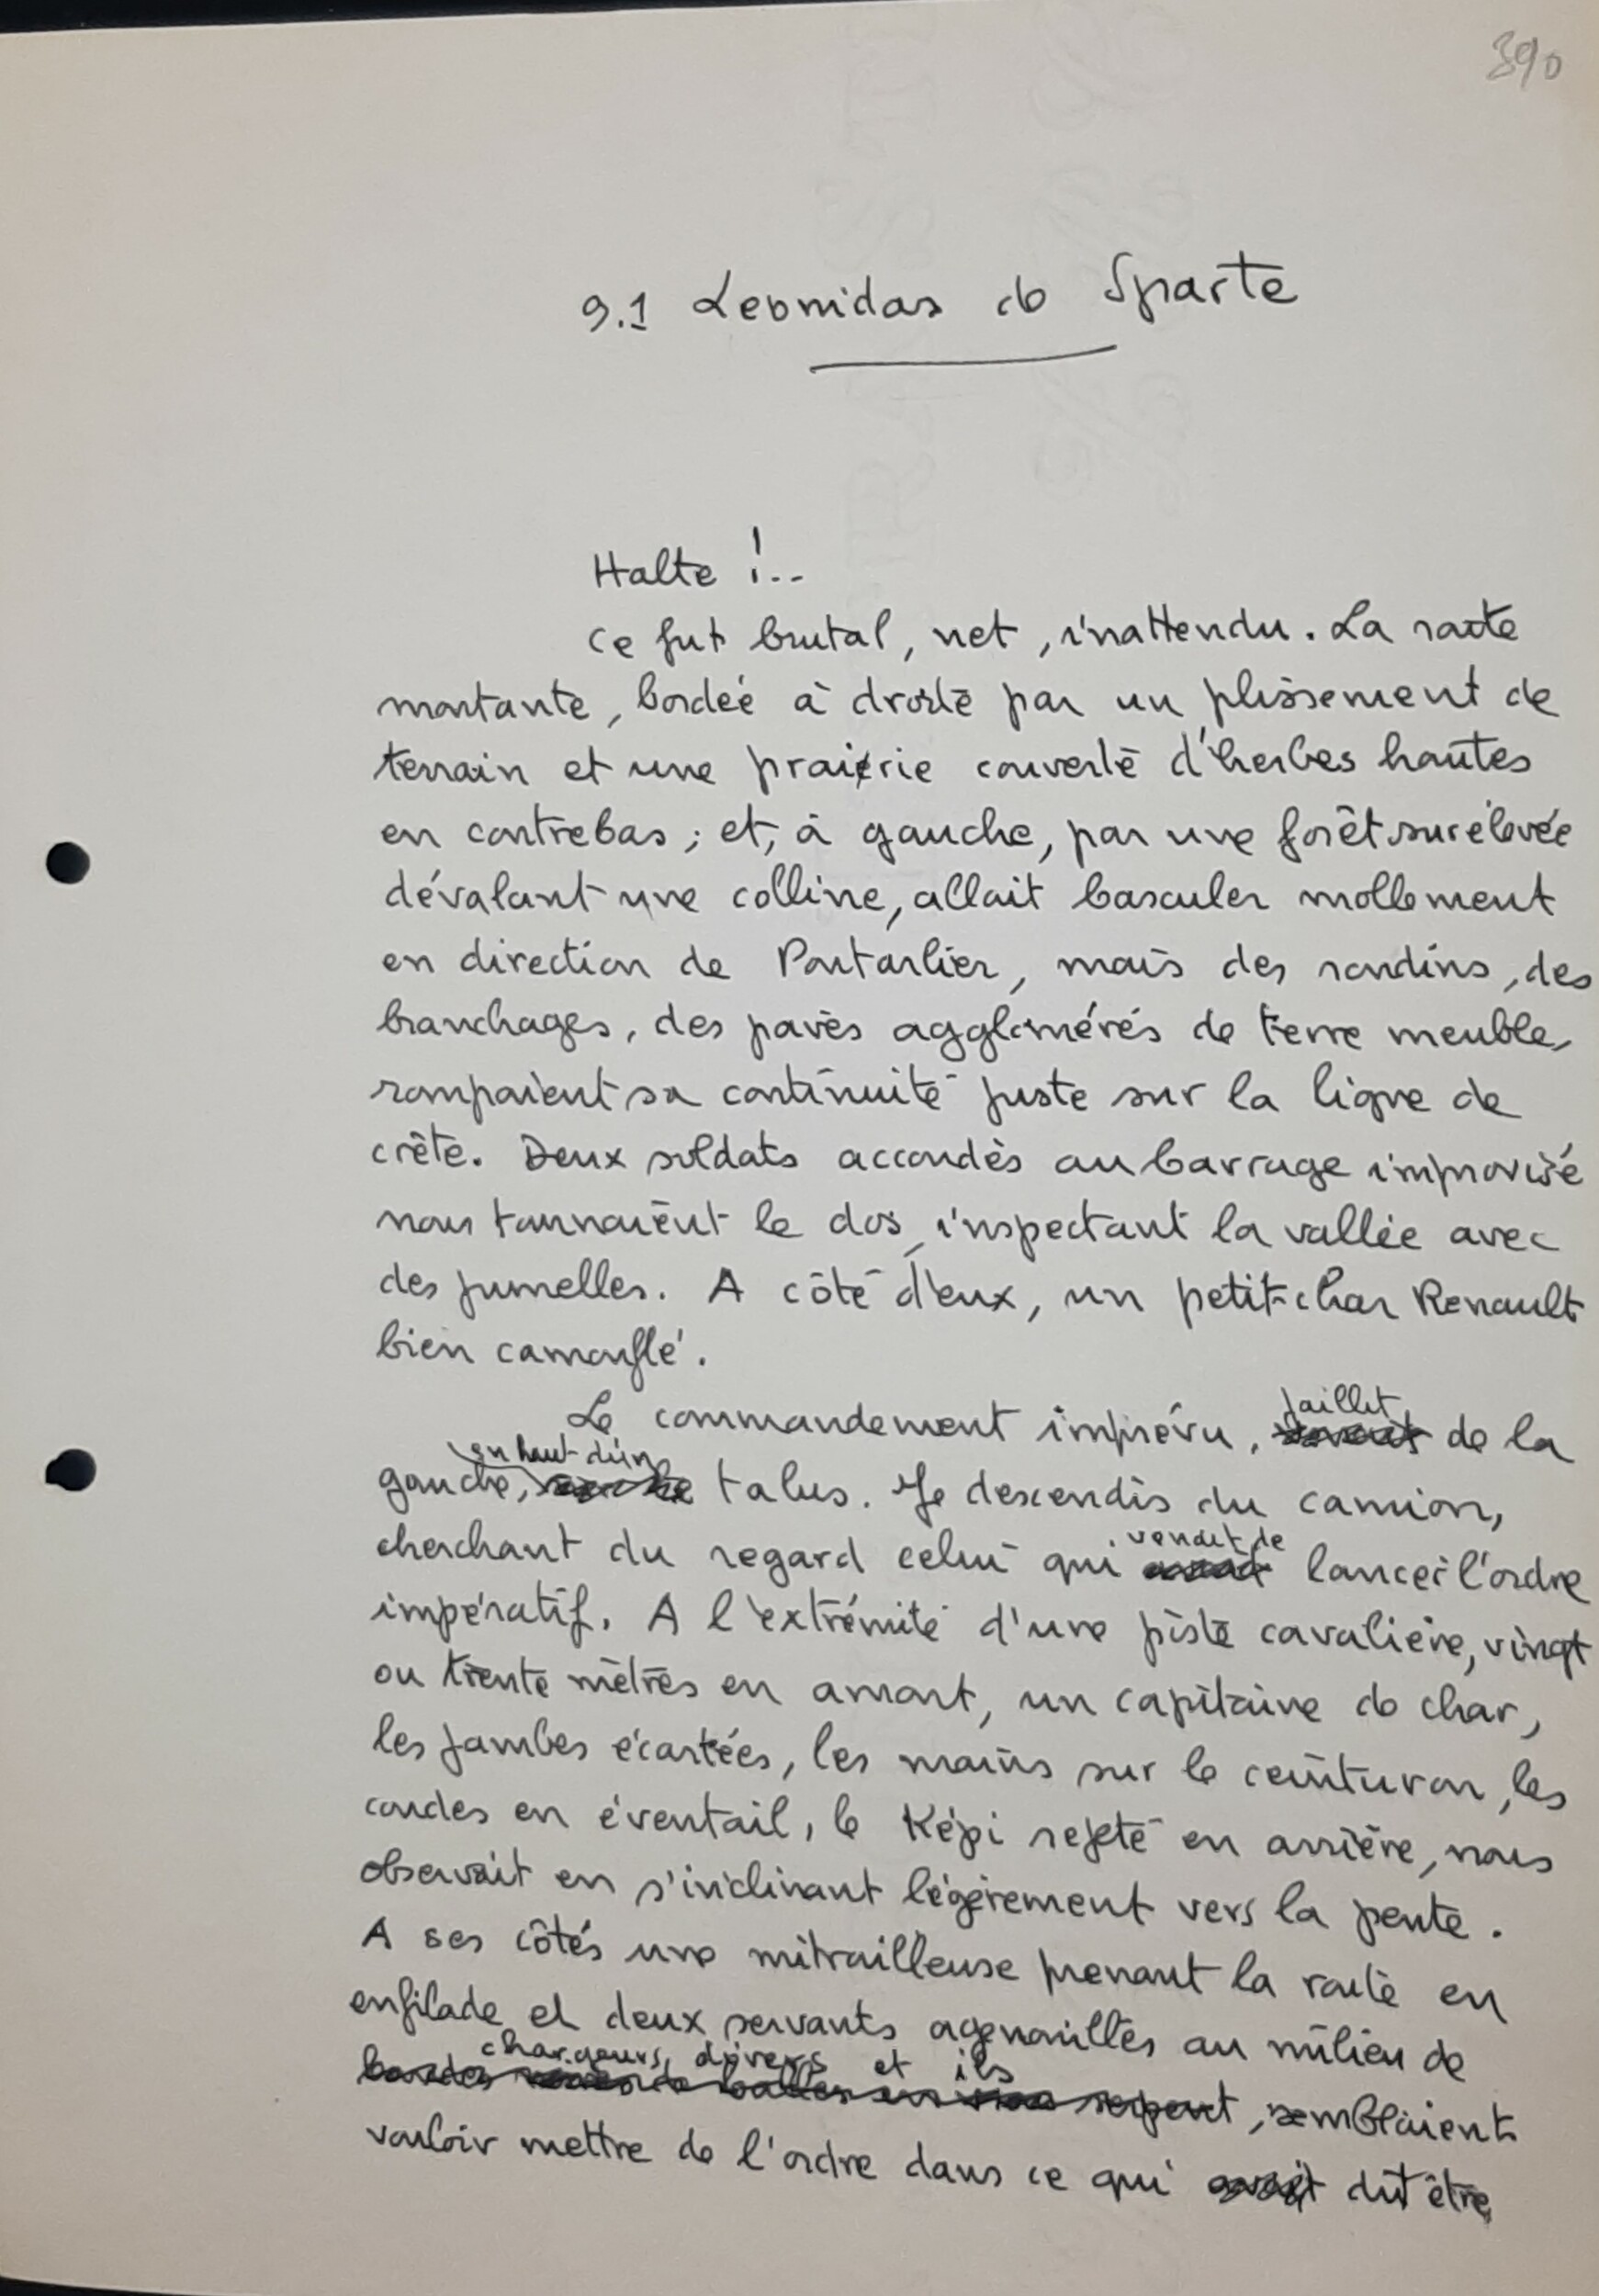 390
9.1 Leonidas de Sparte
Halte !..
Ce fut brutal, net, inattendu. La route
montante, bordée à droite par un plissement de
terrain et une prairie couverte d'herbes hautes
en contrebas ; et, à gauche, par une forêt surélevée
dévalant une colline, allait basculer mollement
en direction de Pontarlier, mais des rondins, des
branchages, des pavés agglomérés de terre meuble,
rompaient sa continuité juste sur la ligne de
crête. Deux soldats accoudés au barrage improvisé
nous tournaient le dos, inspectant la vallée avec
des jumelles. A côté d'eux, un petit char Renault
bien camouflé.
Le commandement imprévu, jaillit de la
gauche, en haut d'un talus. Je descendis du camion,
cherchant du regard celui qui venait de lancer l'ordre
impératif. A l'extrémité d'une piste cavalière, vingt
ou trente mètres en amont, un capitaine de char,
les jambes écartées, les mains sur le ceinturon, les
coudes en éventail, le képi rejeté en arrière, nous
observait en s'inclinant légèrement vers la pente.
A ses côtés une mitrailleuse prenant la route en
enfilade et deux servants agenouillés au milieu de
chargeurs divers et ils semblaient
vouloir mettre de l'ordre dans ce qui dût être